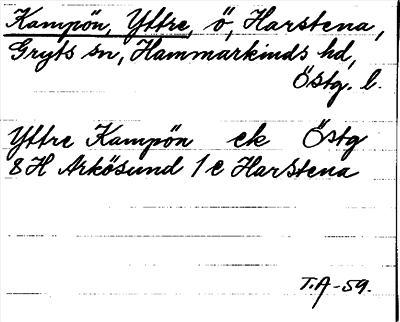 Kampön, Yttre, ö, Harstena,
Gryts sn, Hammarkinds hd,
Östg. l.
Yttre Kampön ek Östg
8H Arkösund 1c Harstena
T.A-59.